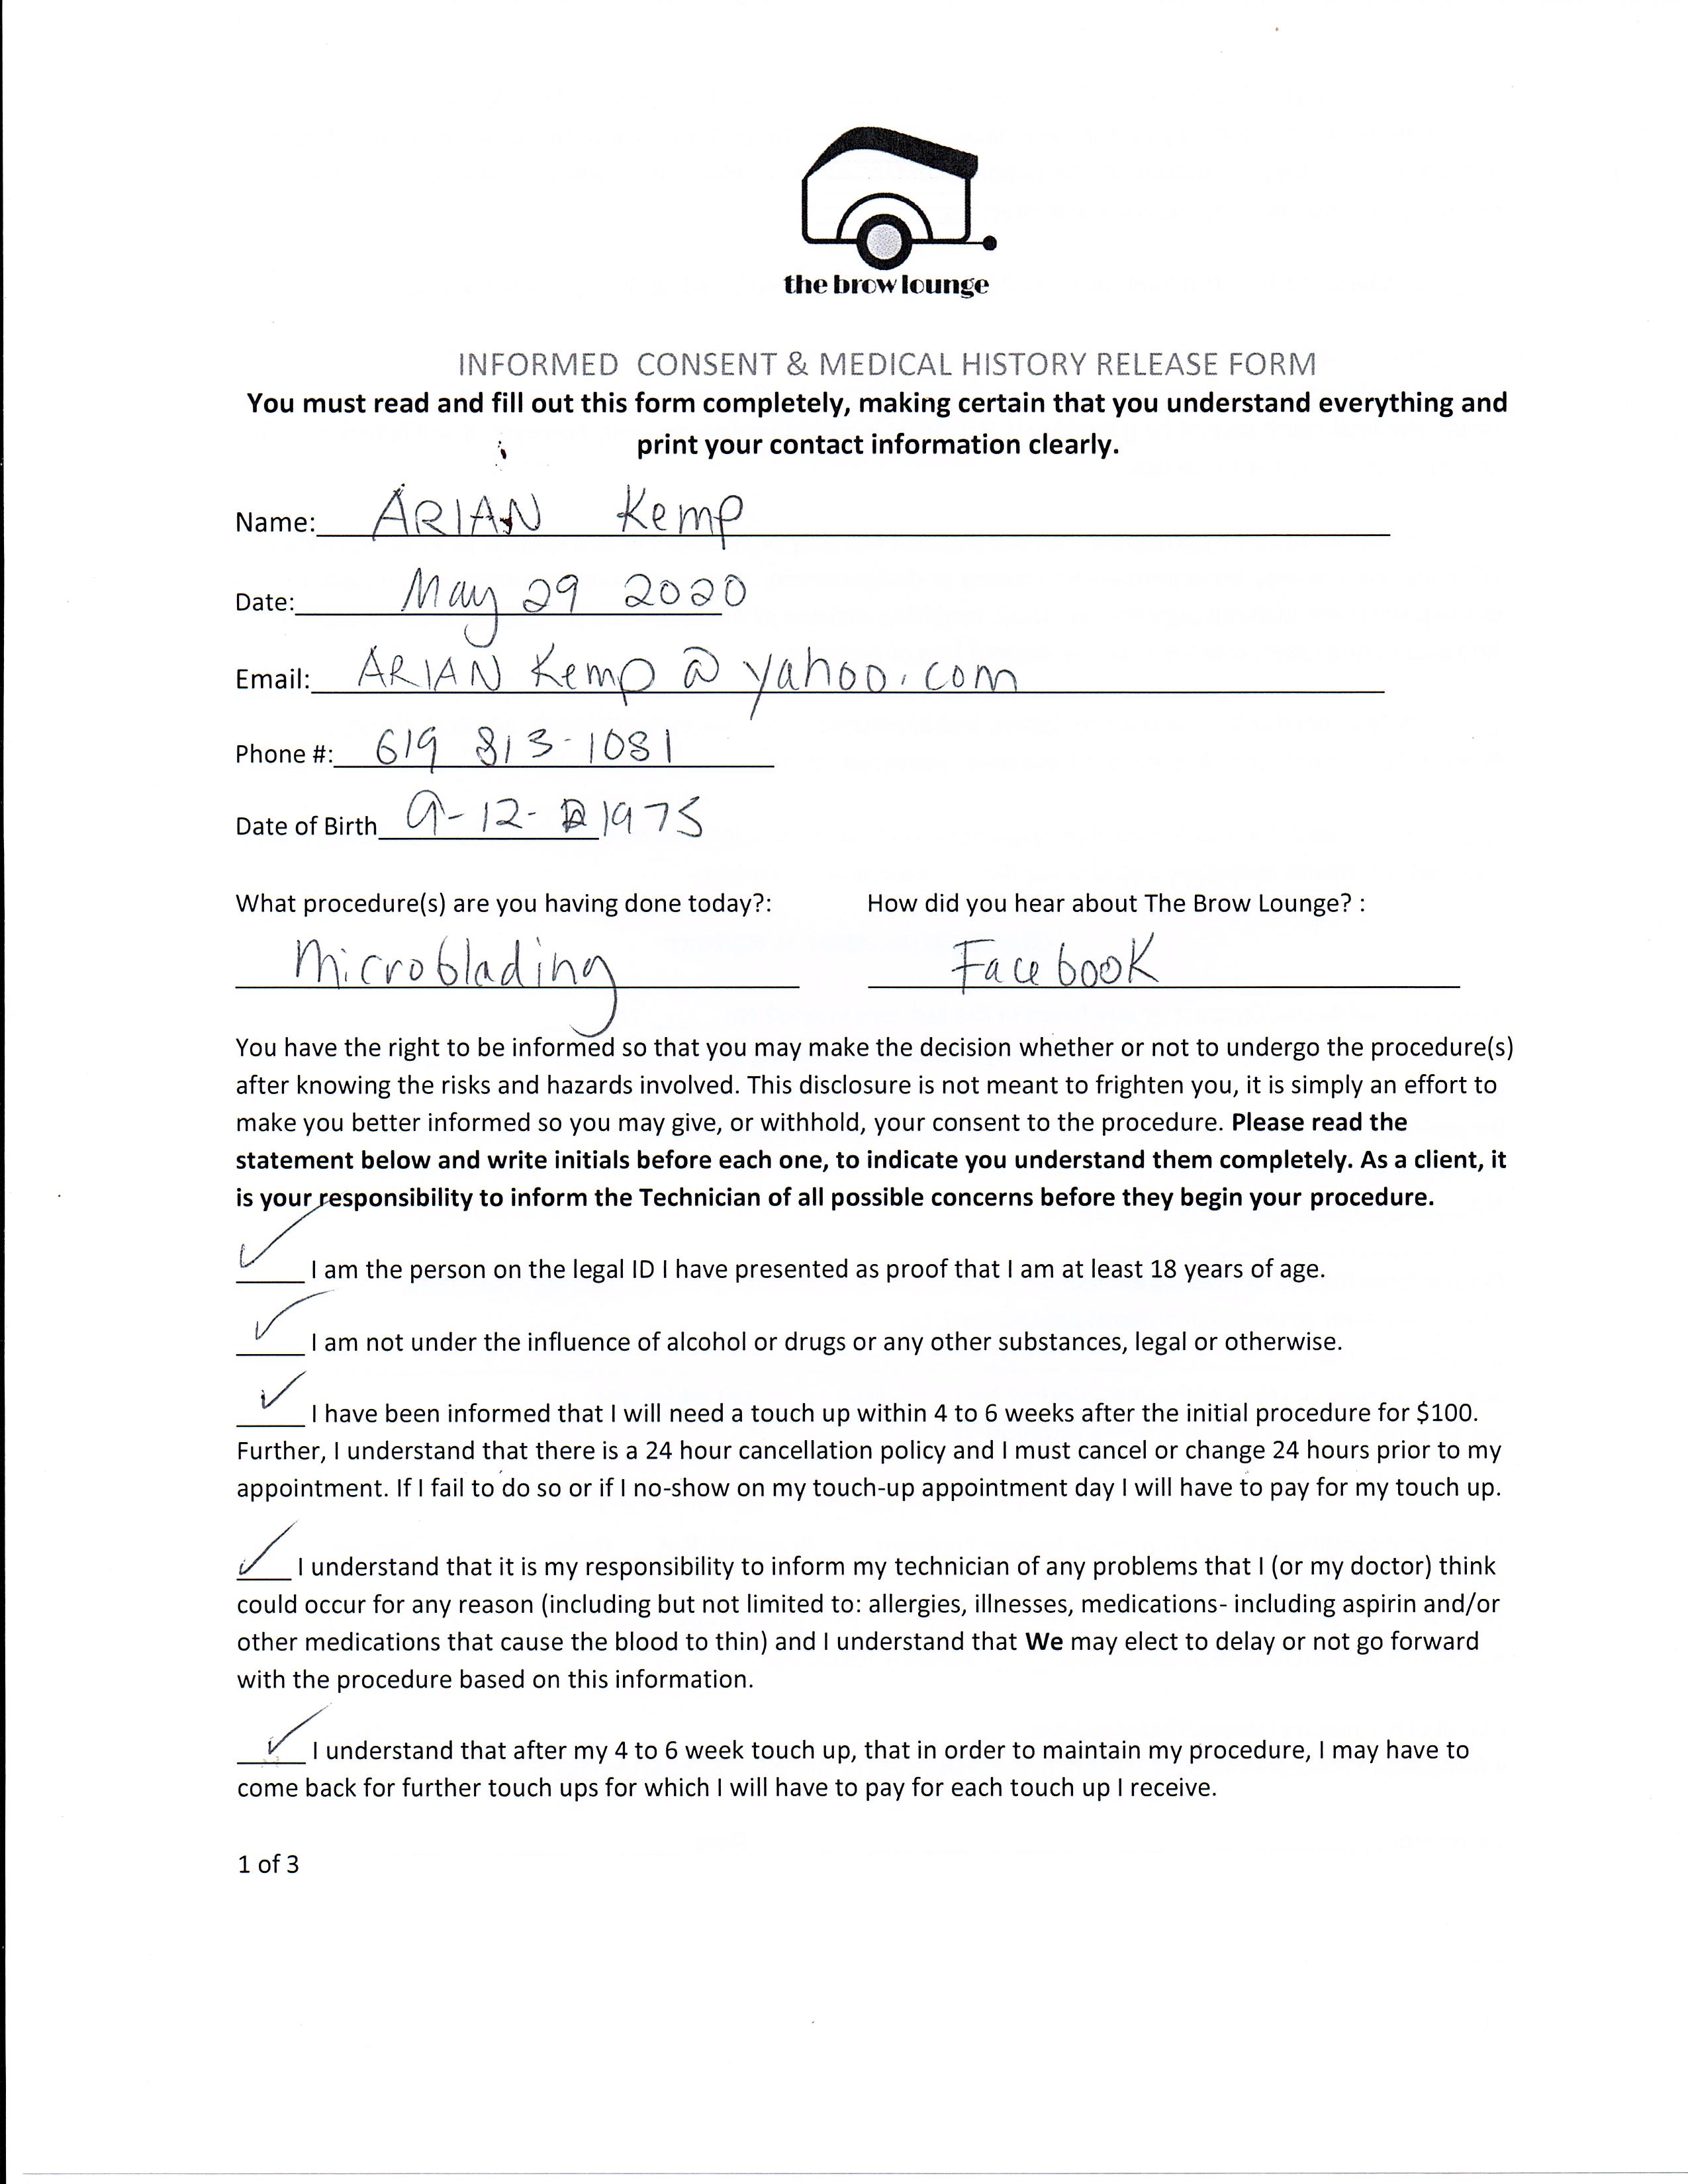 the brow lounge
INFORMED CONSENT & MEDICAL HISTORY RELEASE FORM
You must read and fill out this form completely, making certain that you understand everything and
print your contact information clearly.
Name: ARIAN Kemp
Date: May 29 2020
Email: ARIAN Kemp @ yahoo.com
Phone #: 619 813-1081
Date of Birth 9-12- 1975
What procedure(s) are you having done today?: How did you hear about The Brow Lounge? :
Microblading Facebook
You have the right to be informed so that you may make the decision whether or not to undergo the procedure(s)
after knowing the risks and hazards involved. This disclosure is not meant to frighten you, it is simply an effort to
make you better informed so you may give, or withhold, your consent to the procedure. Please read the
statement below and write initials before each one, to indicate you understand them completely. As a client, it
is your responsibility to inform the Technician of all possible concerns before they begin your procedure.
✓ I am the person on the legal ID I have presented as proof that I am at least 18 years of age.
✓ I am not under the influence of alcohol or drugs or any other substances, legal or otherwise.
✓ I have been informed that I will need a touch up within 4 to 6 weeks after the initial procedure for $100.
Further, I understand that there is a 24 hour cancellation policy and I must cancel or change 24 hours prior to my
appointment. If I fail to do so or if I no-show on my touch-up appointment day I will have to pay for my touch up.
✓ I understand that it is my responsibility to inform my technician of any problems that I (or my doctor) think
could occur for any reason (including but not limited to: allergies, illnesses, medications- including aspirin and/or
other medications that cause the blood to thin) and I understand that We may elect to delay or not go forward
with the procedure based on this information.
✓ I understand that after my 4 to 6 week touch up, that in order to maintain my procedure, I may have to
come back for further touch ups for which I will have to pay for each touch up I receive.
1 of 3